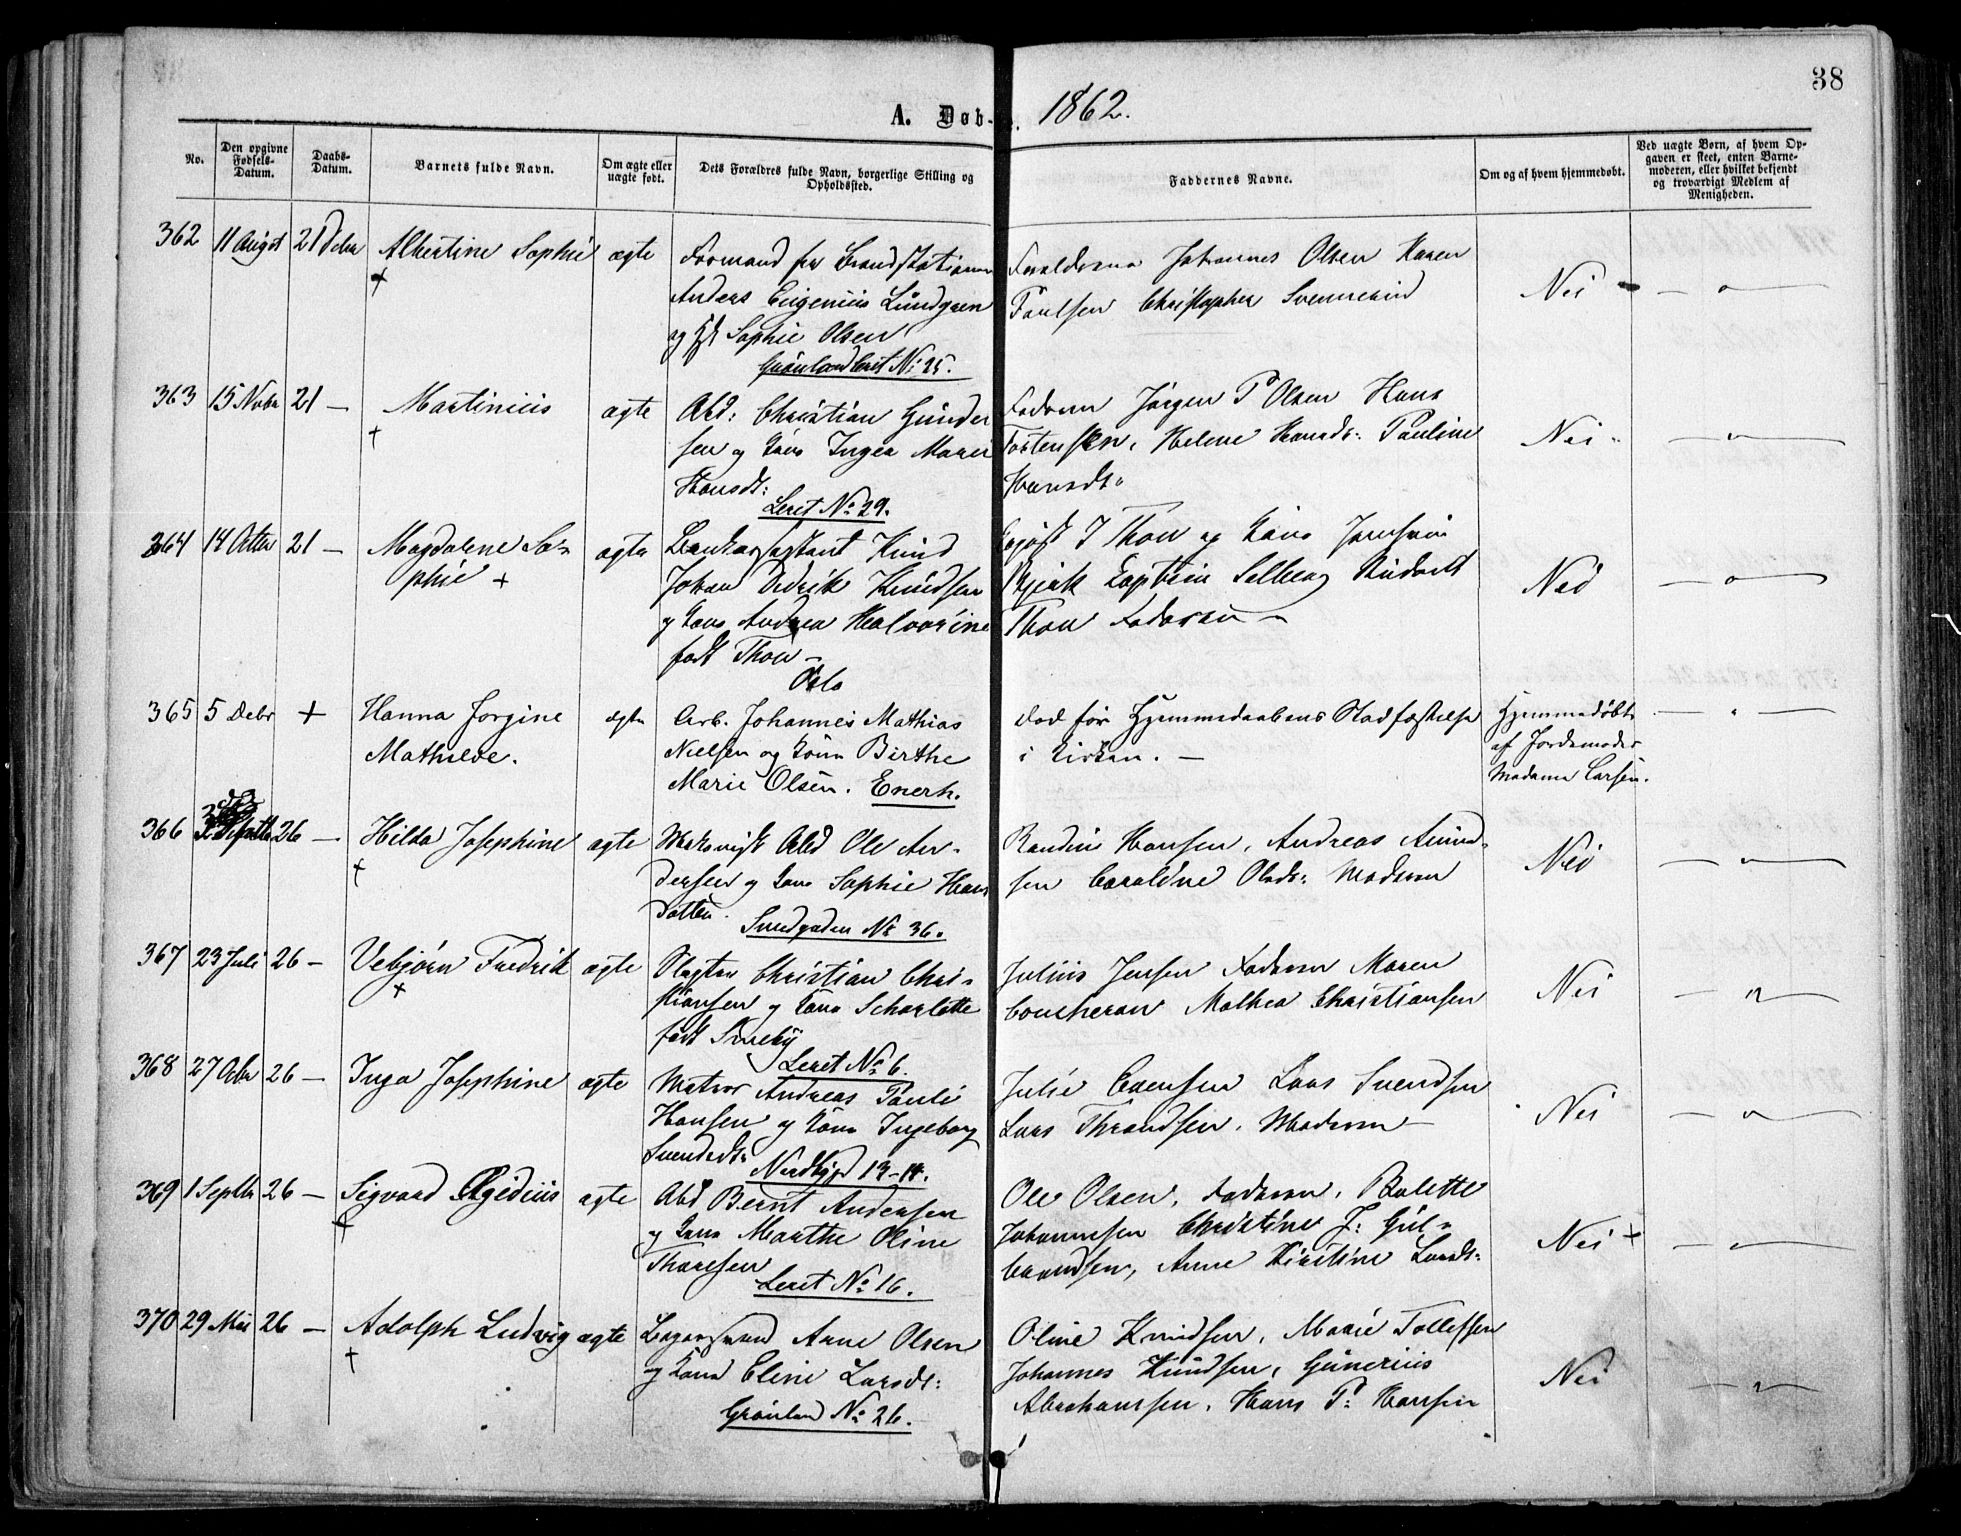 38
A. Døb- 1862.
No.
Den opgivne Fødsels-Datum.
Daabs-Datum.
Barnets fulde Navn.
Om ægte eller uægte født.
Dets Forældres fulde Navn, borgerlige Stilling og Opholdssted.
Faddernes Navne.
Om og af hvem hjemmedøbt.
Ved uægte Børn, af hvem Opgaven er skeet, enten Barnemoderen, eller hvilket bekjendt og troværdigt Medlem af Menigheden.
362 11 August 21 Debr Albertine Sophie ægte
Formand
Anders Eugenius Lundgren
og Sophie Olsen
Grønlandsleret No 25.
Forældrene Johannes Olsen Karen
Paulsen Christopher
Nei
363 15 Novbr 21 — Martinius ægte
Abd: Christian Gunder
sen og Kone Inger Marie
Hansdt:
Leret No 29.
Faderen Jørgen P Olsen Hans
Torstensen, Helene Hansdt: Pauline
Hansdt:
Nei
364 14 21 — Magdalene So-
phie + ægte
Knud
Johan Didrik Knudsen
og Kone Andrea Halvorine
født Thou —
Oslo
J Thou og Kone
Thou Faderen —
Nei
365 5 Debr + Hanna Jorgine
Mathilde. ægte
Arb. Johannes Mathias
Nielsen og Kone Birthe
Marie Olsen. Enerh.
død før Hjemmedaabens Stadfæstelse
i Kirken. —
Hjemmedøbt
af Jordemoder
Madame Larsen.
366 26 — Hilda Josephine ægte
Abd Ole An-
dersen og Kone Sophie Hans
datter.
Smedgaden No 36.
Hansen, Andreas Amund-
sen Caroline Olsdt: Moderen
Nei
367 23 Juli 26 — Vebjørn Fredrik ægte
Slagter Christian Chri-
stiansen og Kone Scharlotte
født
Leret No 6.
Julius Jensen Faderen Maren
Mathea Christiansen
Nei
368 27 Octbr 26 — Inga Josephine ægte
Matros Andreas Pauli
Hansen og Kone Ingeborg
Svendsdt:
13-14.
Julie Evensen Lars Svendsen
Lars Throndsen, Moderen —
Nei
369 1 Septbr 26 — Sigvard Ægidius ægte
Abd Bernt Andersen
og Kone Marthe Oline
Thoresen
Leret No 16.
Ole Olsen, Faderen, Bolette
Johannesen Christine J: Gul-
brandsen, Anne Kirstine Larsdt:
Nei +
370 29 Mai 26 — Adolph Ludvig ægte
Arne Olsen
og Kone Eline Larsdt:
Grønland No 26.
Oline Knudsen, Marie Tollefsen
Johannes Knudsen, Gunerius
Abrahamsen, Hans P: Hansen
Nei